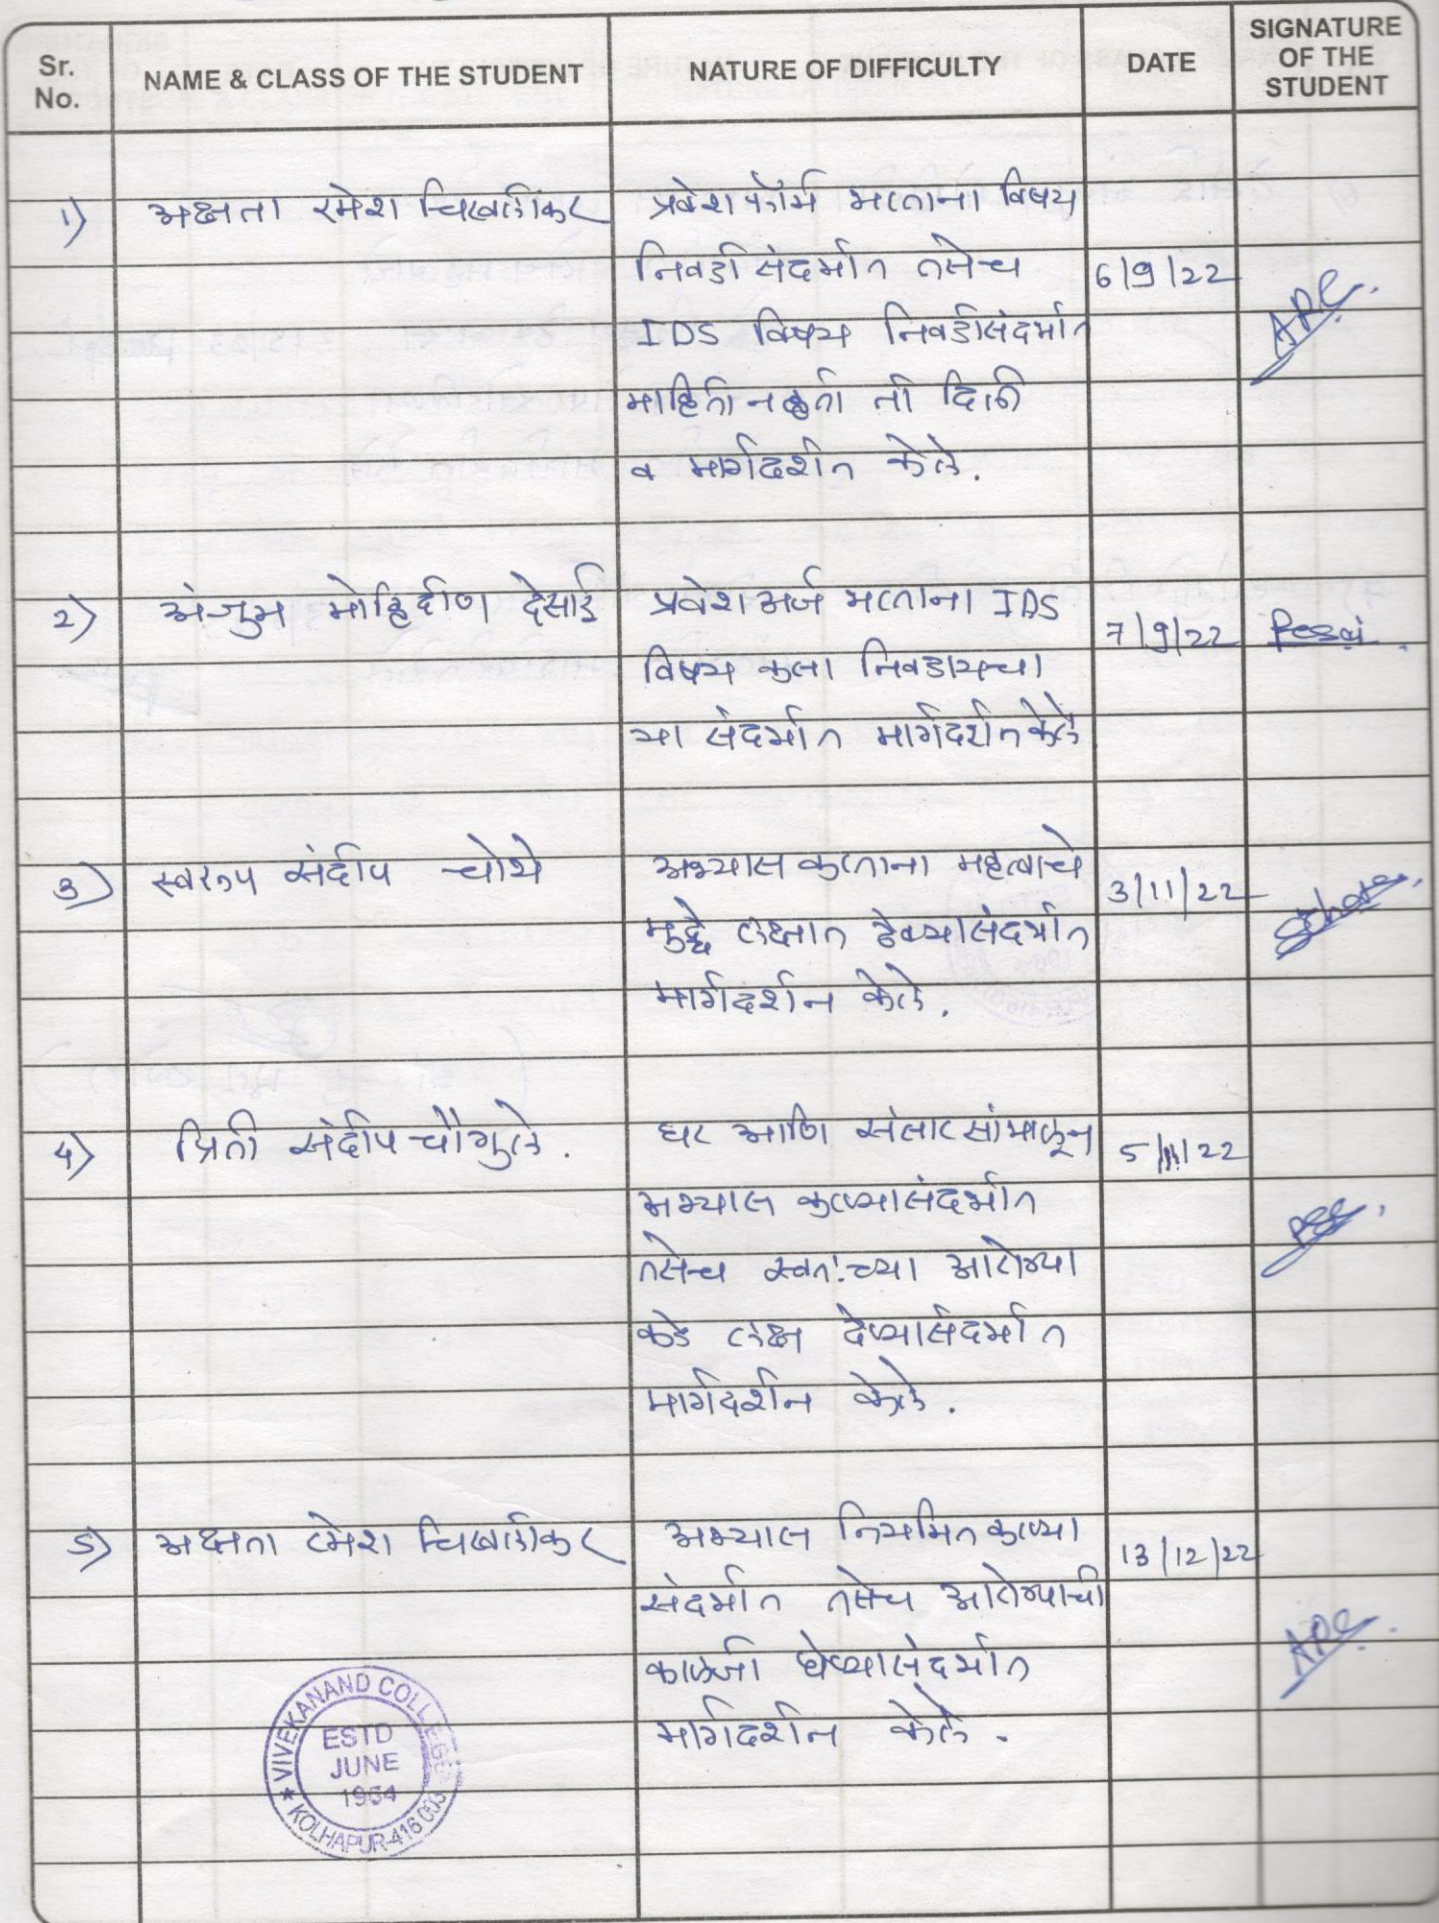 Sr. No.
NAME & CLASS OF THE STUDENT
NATURE OF DIFFICULTY
DATE
SIGNATURE OF THE STUDENT
1) अक्षता रमेश चिखलीकर प्रवेश फॉर्म भरताना विषय
निवडी संदर्भात तसेच 6/9/22
IDS विषय निवडीसंदर्भात
माहिती नव्हती ती दिली
व मार्गदर्शन केले.
2) अंजुम मोहिद्दीण देसाई प्रवेश अर्ज भरताना IDS
7/9/22 Desai
विषय कसा निवडायचा
या संदर्भात मार्गदर्शन केले
3) स्वरुप संदीप चोथे अभ्यास करताना महत्वाचे
3/11/22
मुद्दे लक्षात ठेवण्यासंदर्भात
मार्गदर्शन केले.
4) प्रिती संदीप चौगुले. घर आणि संसार सांभाळून
5/11/22
अभ्यास करण्यासंदर्भात
तसेच स्वतःच्या आरोग्या
कडे लक्ष देण्यासंदर्भात
मार्गदर्शन केले.
5) अक्षता रमेश चिखलीकर अभ्यास नियमित करण्या
13/12/22
संदर्भात तसेच आरोग्याची
काळजी घेण्यासंदर्भात
मार्गदर्शन केले.
ARC
ARC
VIVEKANAND COLLEGE
ESTD
JUNE
1964
KOLHAPUR-416 003